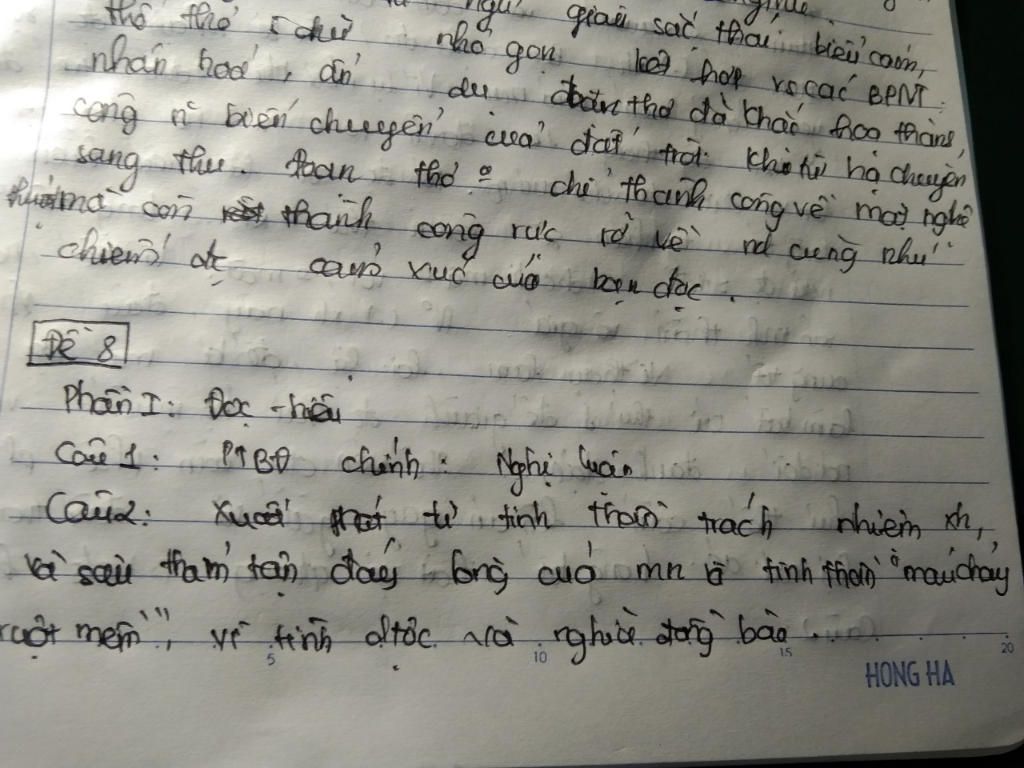 ngữ giàu sắc thái biểu cảm,
thể thơ 5 chữ nhỏ gọn kết hợp vs các BPNT:
nhân hoá, ẩn dụ đoạn thơ đã khắc hoạ thành
công n~ biến chuyển của đất trời khi từ hạ chuyển
sang thu. Đoạn thơ o chỉ thành công về mặt nghệ
thuật mà còn thành công rực rỡ về nd cũng như
chiếm đc cảm xúc của bạn đọc.
Đề 8
Phần I: Đọc - hiểu
Câu 1: PTBĐ chính: Nghị luận
Câu 2: Xuất phát từ tinh thần trách nhiệm xh,
và sâu thẳm tận đáy lòng của mn là tinh thần "máu chảy
ruột mềm", vì tình dtộc và nghĩa đồng bào.
5 10 15 20
HONG HA